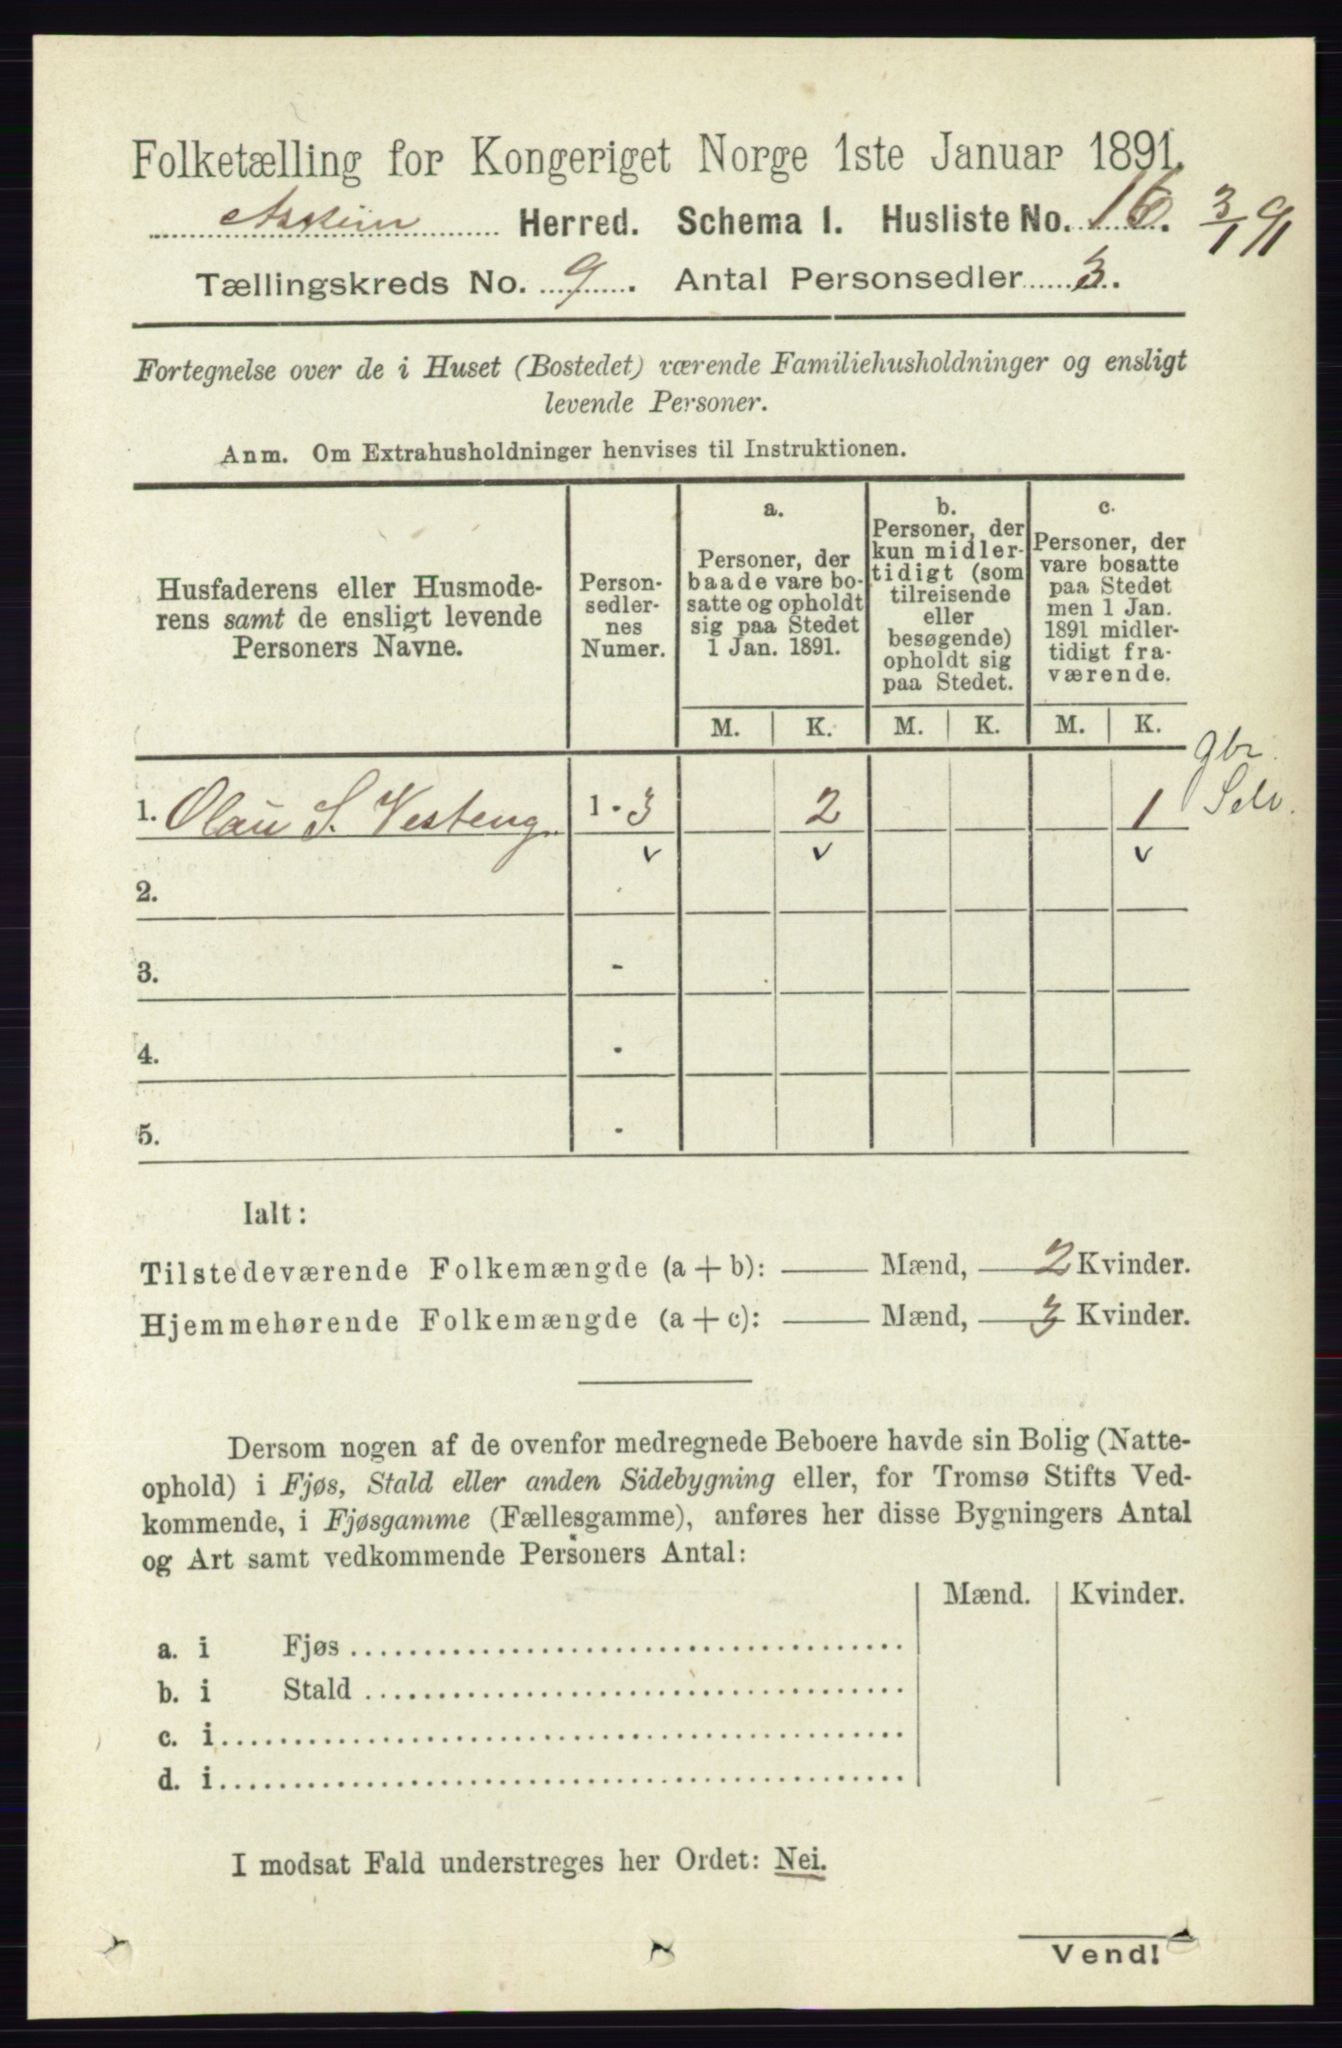 Folketælling for Kongeriget Norge 1ste Januar 1891.
Askim Herred. Schema I. Husliste No. 16. 3/1 91
Tællingskreds No. 9. Antal Personsedler 3.
Fortegnelse over de i Huset (Bostedet) værende Familiehusholdninger og ensligt
levende Personer.
Anm. Om Extrahusholdninger henvises til Instruktionen.
Husfaderens eller Husmode-
rens samt de ensligt levende
Personers Navne.
Person-
sedler-
nes
Numer.
a.
Personer, der
baade vare bo-
satte og opholdt
sig paa Stedet
1 Jan. 1891.
b.
Personer, der
kun midler-
tidigt (som
tilreisende
eller
besøgende)
opholdt sig
paa Stedet.
c.
Personer, der
vare bosatte
paa Stedet
men 1 Jan.
1891 midler-
tidigt fra-
værende.
M. K. M. K. M. K.
gbr.
Selv.
1. Olau S. Vesteng 1 - 3 2 1
2.
3. -
4. -
5. -
Ialt:
Tilstedeværende Folkemængde (a + b): — Mænd, 2 Kvinder.
Hjemmehørende Folkemængde (a + c): — Mænd, 3 Kvinder.
Dersom nogen af de ovenfor medregnede Beboere havde sin Bolig (Natte-
ophold) i Fjøs, Stald eller anden Sidebygning eller, for Tromsø Stifts Ved-
kommende, i Fjøsgamme (Fællesgamme), anføres her disse Bygningers Antal
og Art samt vedkommende Personers Antal:
Mænd. Kvinder.
a. i Fjøs
b. i Stald
c. i
d. i
I modsat Fald understreges her Ordet: Nei.
Vend!